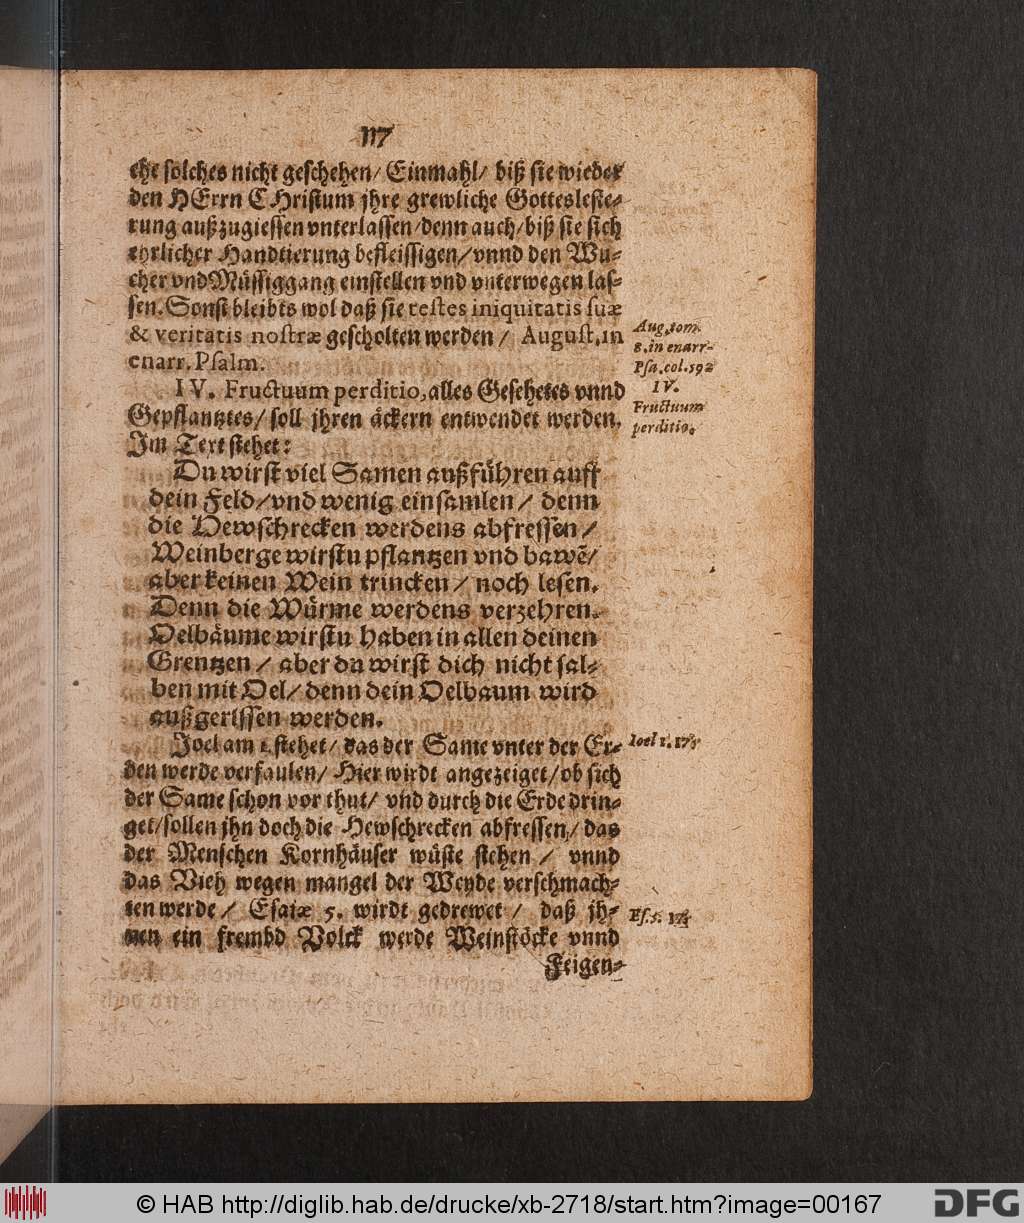 117
ehe solches nicht geschehen/ Einmahl/ biß sie wieder
den HErrn CHristum jhre grewliche Gottesleste-
rung außzugiessen vnterlassen/denn auch/biß sie sich
ehrlicher Handtierung befleissigen/vnnd den Wu-
cher vnd Müssiggang einstellen vnd vnterwegen las-
sen. Sonst bleibts wol daß sie testes iniquitatis suæ
& veritatis nostræ gescholten werden/ August. in
enarr. Psalm.
Aug. tom.
8. in enarr.
Psa. col. 592
IV. Fructuum perditio, alles Gesehetes vnnd
Gepflantztes/ soll jhren äckern entwendet werden.
Im Text stehet:
IV.
Fructuum
perditio.
Du wirst viel Samen außführen auff
dein Feld/vnd wenig einsamlen/ denn
die Hewschrecken werdens abfressen/
Weinberge wirstu pflantzen vnd bawẽ/
aber keinen Wein trincken/ noch lesen.
Denn die Würme werdens verzehren.
Oelbäume wirstu haben in allen deinen
Grentzen/ aber du wirst dich nicht sal-
ben mit Oel/ denn dein Oelbaum wird
außgerissen werden.
Joel am 1. stehet/ das der Same vnter der Er-
Ioel 1. 17
den werde verfaulen/ Hier wirdt angezeiget/ob sich
der Same schon vor thut/ vñd durch die Erde drin-
get/sollen jhn doch die Hewschrecken abfressen/ das
der Menschen Kornhäuser wüste stehen/ vnnd
das Vieh wegen mangel der Weyde verschmach-
ten werde/ Esaiæ 5. wirdt gedrewet/ daß jh-
Es. 5. 17
nen ein frembd Volck werde Weinstöcke vnnd
Feigen-
© HAB http://diglib.hab.de/drucke/xb-2718/start.htm?image=00167
DFG